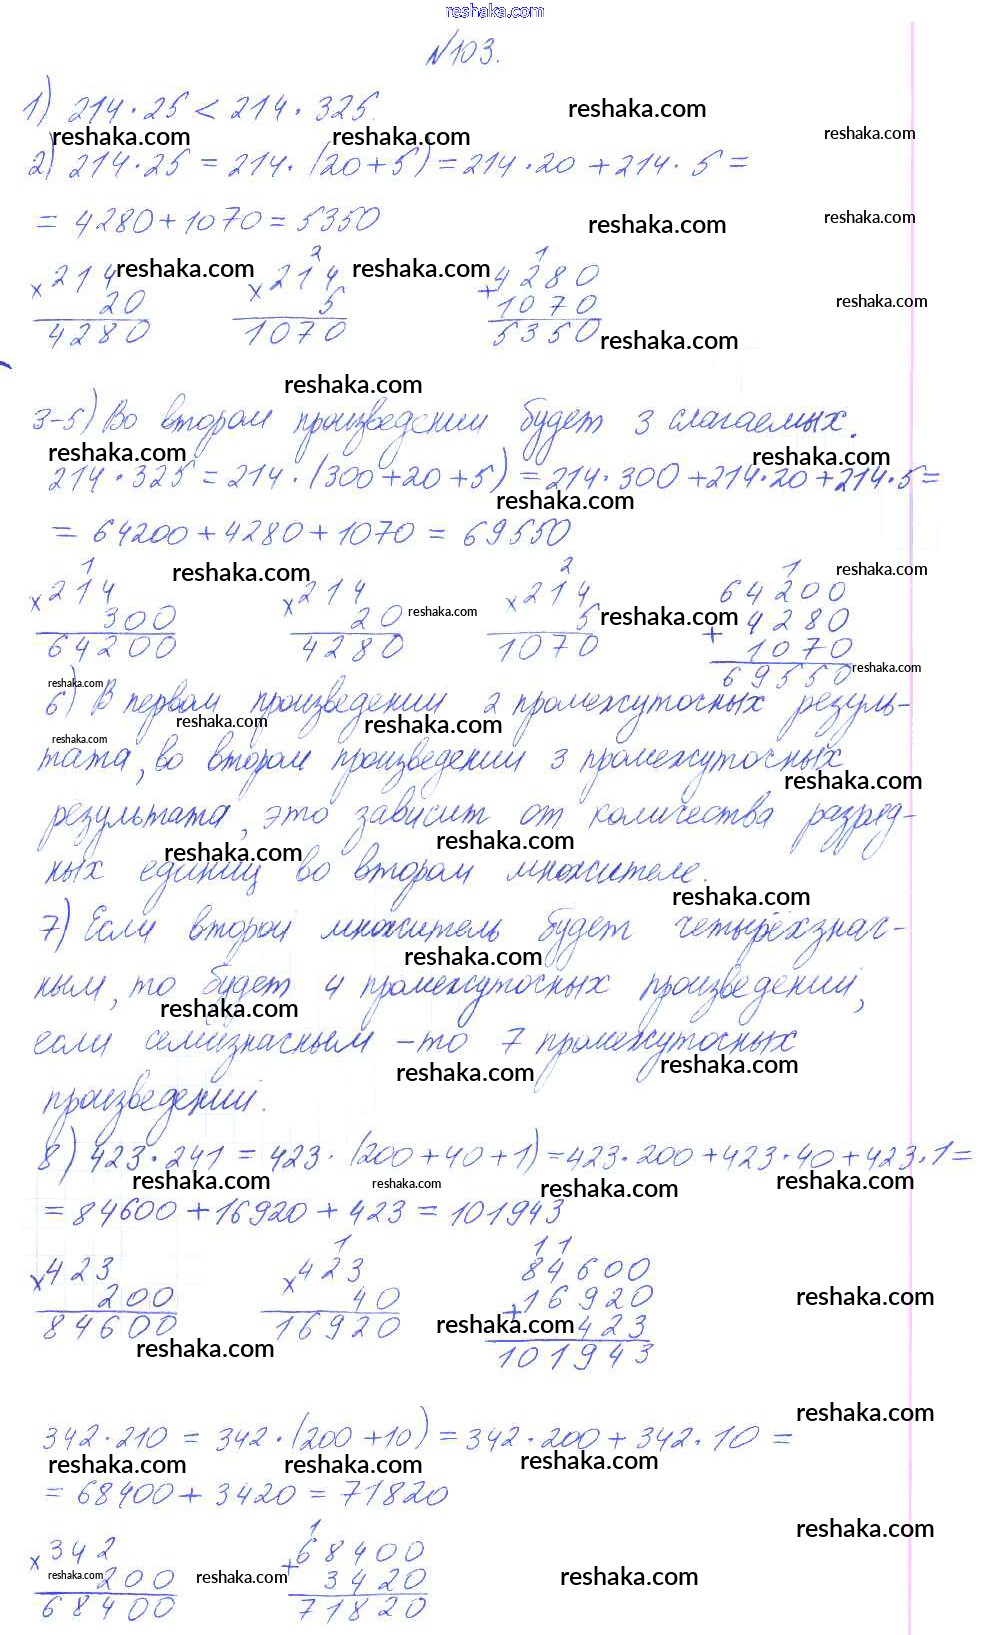 reshaka.com
№103.
1) 214 · 25 < 214 · 325.
reshaka.com
reshaka.com reshaka.com reshaka.com
2) 214 · 25 = 214 · (20 + 5) = 214 · 20 + 214 · 5 =
= 4280 + 1070 = 5350
reshaka.com reshaka.com
2 1
× 214 reshaka.com × 214 reshaka.com + 4280
20 5 1070 reshaka.com
4280 1070 5350 reshaka.com
reshaka.com
3-5) Во втором произведении будет 3 слагаемых.
reshaka.com reshaka.com
214 · 325 = 214 · (300 + 20 + 5) = 214 · 300 + 214 · 20 + 214 · 5 =
reshaka.com
= 64200 + 4280 + 1070 = 69550
1 reshaka.com 2 1 reshaka.com
× 214 × 214 × 214 64200
300 20 reshaka.com 5 reshaka.com + 4280
64200 4280 1070 1070
69550 reshaka.com
reshaka.com
6) В первом произведении 2 промежуточных резуль-
reshaka.com reshaka.com
reshaka.com
тата, во втором произведении 3 промежуточных
reshaka.com
результата, это зависит от количества разряд-
reshaka.com reshaka.com
ных единиц во втором множителе.
reshaka.com
7) Если второй множитель будет четырёхзнач-
reshaka.com
ным, то будет 4 промежуточных произведений,
reshaka.com
если семизначным – то 7 промежуточных
reshaka.com reshaka.com
произведений.
8) 423 · 241 = 423 · (200 + 40 + 1) = 423 · 200 + 423 · 40 + 423 · 1 =
reshaka.com reshaka.com reshaka.com reshaka.com
= 84600 + 16920 + 423 = 101943
1 11
× 423 × 423 84600
200 40 + 16920 reshaka.com
84600 16920 reshaka.com 423
reshaka.com 101943
reshaka.com
342 · 210 = 342 · (200 + 10) = 342 · 200 + 342 · 10 =
reshaka.com reshaka.com reshaka.com
= 68400 + 3420 = 71820
1 reshaka.com
× 342 + 68400
reshaka.com 200 reshaka.com 3420 reshaka.com
68400 71820